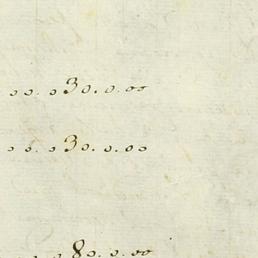 ..30.0.00
...30.0.00
...80.0.00